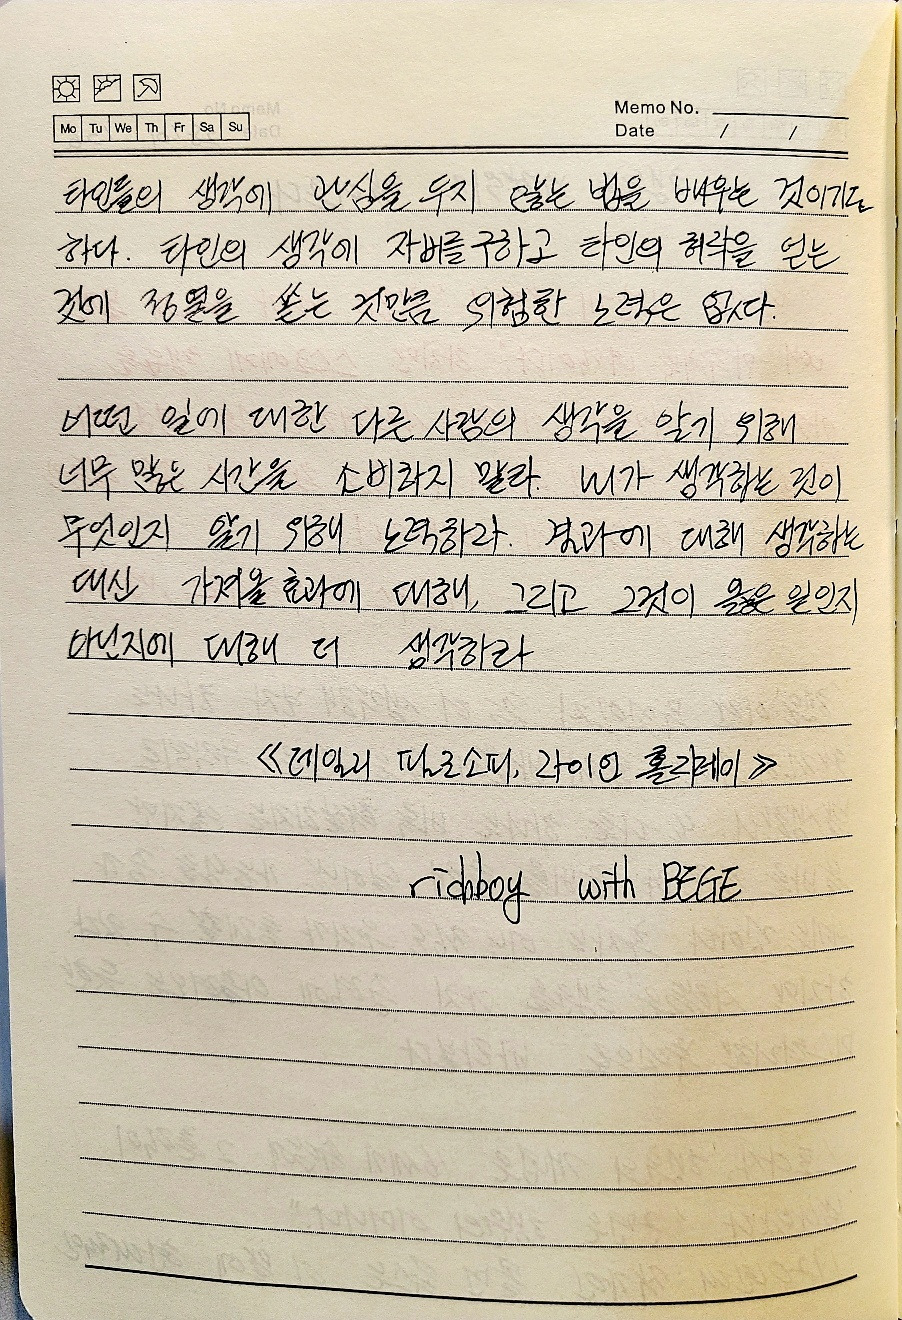 Memo No.
Mo Tu We Th Fr Sa Su
Date / /
타인들의 생각에 관심을 두지 않는 법을 배우는 것이기도
하다. 타인의 생각에 자비를 구하고 타인의 허락을 얻는
것에 정열을 쏟는 것만큼 위험한 노력은 없다.
어떤 일에 대한 다른 사람의 생각을 알기 위해
너무 많은 시간을 소비하지 말라. 내가 생각하는 것이
무엇인지 알기 위해 노력하라. 결과에 대해 생각하는
대신 가져올 효과에 대해, 그리고 그것이 옳은 일인지
아닌지에 대해 더 생각하라
《데일리 필로소피, 라이언 홀리데이》
richboy with BEGE